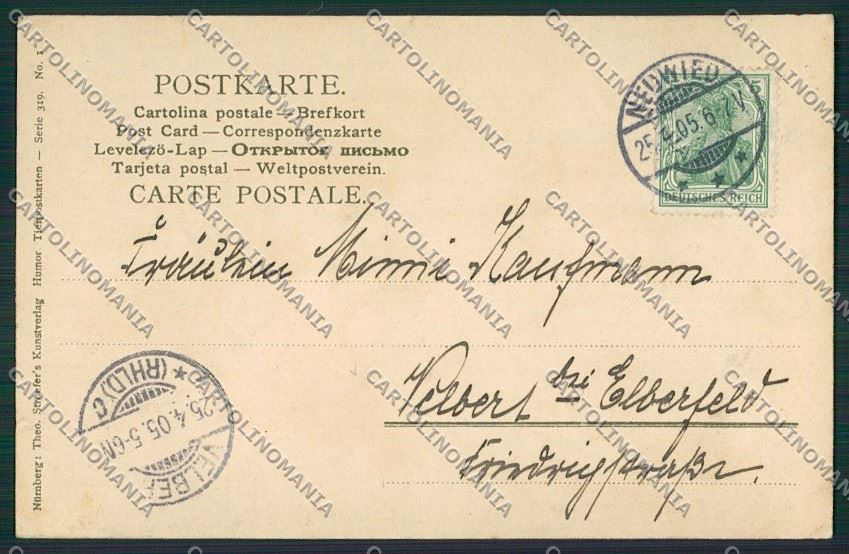 POSTKARTE.
Cartolina postale — Brefkort
Post Card — Correspondenzkarte
Levelezö-Lap — Открытое письмо
Tarjeta postal — Weltpostverein.
CARTE POSTALE.
NEUWIED
25.4.05. 6-7V.
DEUTSCHES REICH
Fräulein Minni Kaufmann
Velbert bei Elberfeld
Friedrichstraße.
VELBERT
(RHLD) C
25.4.05. 5-6N
Nürnberg: Theo. Stroefer's Kunstverlag Humor Tierpostkarten — Serie 319. No. 1
CARTOLINOMANIA